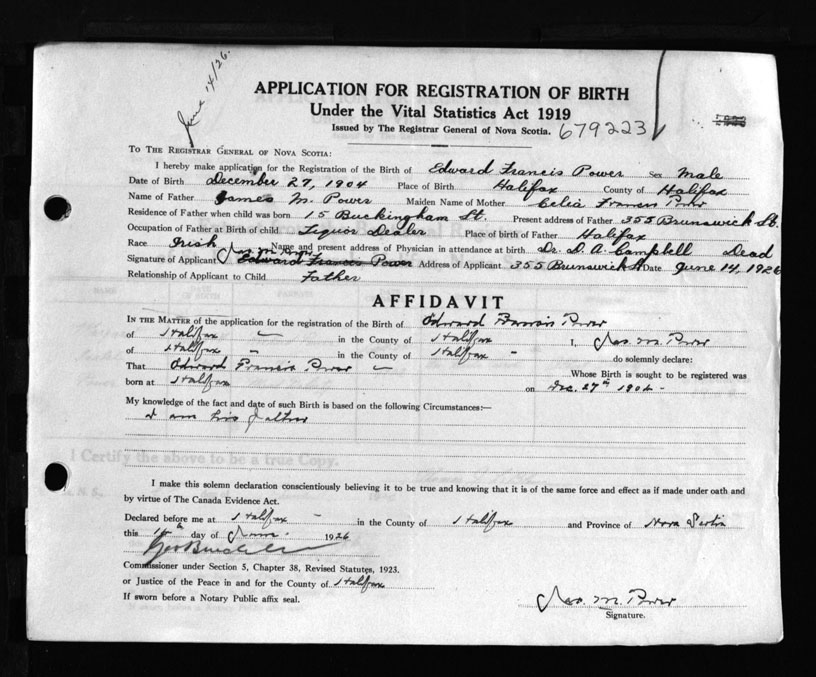 June 14/26.
APPLICATION FOR REGISTRATION OF BIRTH
Under the Vital Statistics Act 1919
Issued by The Registrar General of Nova Scotia. 679223
TO THE REGISTRAR GENERAL OF NOVA SCOTIA:
I hereby make application for the Registration of the Birth of Edward Francis Power Sex Male
Date of Birth December 27, 1904 Place of Birth Halifax County of Halifax
Name of Father James M. Power Maiden Name of Mother Celia Frances Power
Residence of Father when child was born 15 Buckingham St. Present address of Father 355 Brunswick St.
Occupation of Father at Birth of child Liquor Dealer Place of birth of Father Halifax
Race Irish Name and present address of Physician in attendance at birth Dr. D. A. Campbell Dead
Signature of Applicant Jas M Power Edward Francis Power Address of Applicant 355 Brunswick St Date June 14, 1926
Relationship of Applicant to Child Father
AFFIDAVIT
IN THE MATTER of the application for the registration of the Birth of Edward Francis Power
of Halifax in the County of Halifax I, Jas. M. Power
of Halifax in the County of Halifax do solemnly declare:
That Edward Francis Power Whose Birth is sought to be registered was
born at Halifax on Dec. 27th 1904
My knowledge of the fact and date of such Birth is based on the following Circumstances:—
I am his father
I Certify the above to be a true Copy.
I make this solemn declaration conscientiously believing it to be true and knowing that it is of the same force and effect as if made under oath and
by virtue of The Canada Evidence Act.
Declared before me at Halifax in the County of Halifax and Province of Nova Scotia
this 14th day of June 1926
Commissioner under Section 5, Chapter 38, Revised Statutes, 1923.
or Justice of the Peace in and for the County of Halifax
If sworn before a Notary Public affix seal.
Jas. M. Power
Signature.